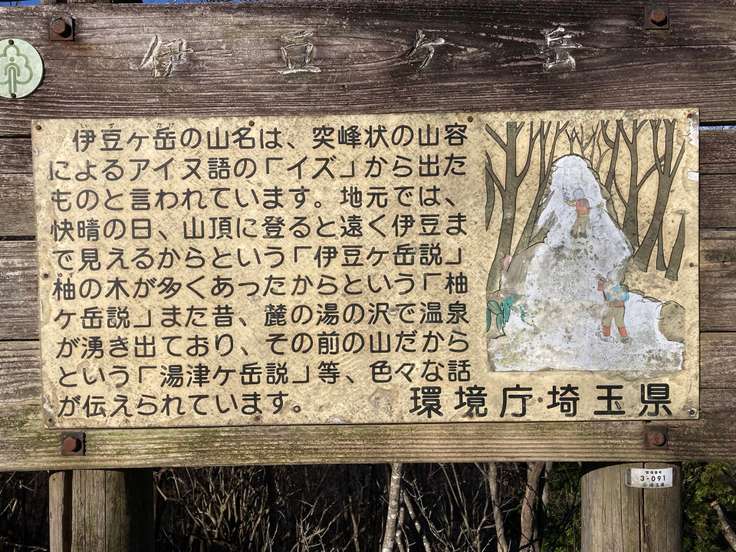 伊豆ケ岳
伊豆ケ岳の山名は、突峰状の山容
によるアイヌ語の「イズ」から出た
ものと言われています。地元では、
快晴の日、山頂に登ると遠く伊豆ま
で見えるからという「伊豆ケ岳説」
柚の木が多くあったからという「柚
ケ岳説」また昔、麓の湯の沢で温泉
が湧き出ており、その前の山だから
という「湯津ケ岳説」等、色々な話
が伝えられています。
環境庁・埼玉県
3-091